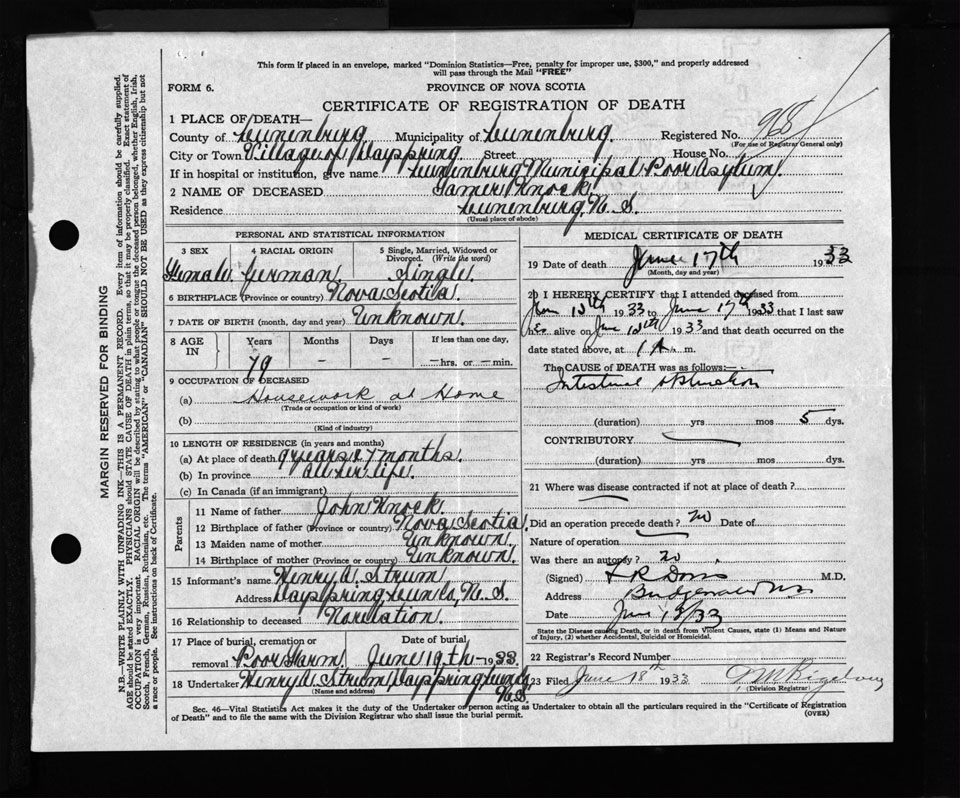 This form if placed in an envelope, marked "Dominion Statistics—Free, penalty for improper use, $300," and properly addressed
will pass through the Mail "FREE"
FORM 6.
PROVINCE OF NOVA SCOTIA
CERTIFICATE OF REGISTRATION OF DEATH
1 PLACE OF DEATH—
County of Lunenburg Municipality of Lunenburg Registered No. 968
(For use of Registrar General only)
City or Town Village of Dayspring Street House No.
If in hospital or institution, give name Lunenburg Municipal Poor Asylum.
2 NAME OF DECEASED Knock.
Residence Lunenburg, N. S.
(Usual place of abode)
PERSONAL AND STATISTICAL INFORMATION
3 SEX 4 RACIAL ORIGIN 5 Single, Married, Widowed or Divorced. (Write the word)
Female German Single.
6 BIRTHPLACE (Province or country) Nova Scotia.
7 DATE OF BIRTH (month, day and year) Unknown.
8 AGE IN Years Months Days If less than one day,
79 – – —hrs. or —min.
9 OCCUPATION OF DECEASED
(a) Housework at Home
(Trade or occupation or kind of work)
(b)
(Kind of industry)
10 LENGTH OF RESIDENCE (in years and months)
(a) At place of death 9 years & 7 months.
(b) In province all her life.
(c) In Canada (if an immigrant)
Parents
11 Name of father John Knock.
12 Birthplace of father (Province or country) Nova Scotia.
13 Maiden name of mother Unknown.
14 Birthplace of mother (Province or country) Unknown.
15 Informant's name Henry A. Strum
Address Dayspring Lun Co, N. S.
16 Relationship to deceased No relation.
17 Place of burial, cremation or removal Poor Farm. Date of burial June 19th – 1933.
18 Undertaker Henry A Strum, Dayspring N. S.
(Name and address)
MEDICAL CERTIFICATE OF DEATH
19 Date of death June 17th 1933
(Month, day and year)
20 I HEREBY CERTIFY that I attended deceased from
1933 to June 17th 1933 that I last saw
her alive on June 1933 and that death occurred on the
date stated above, at 1 A. m.
The CAUSE of DEATH was as follows:—
Intestinal obstruction
(duration) yrs mos 5 dys.
CONTRIBUTORY
(duration) yrs mos dys.
21 Where was disease contracted if not at place of death?
Did an operation precede death? no Date of
Nature of operation
Was there an autopsy? no
(Signed) M.D.
Address Bridgewater NS
Date June 33
State the Disease causing Death, or in death from Violent Causes, state (1) Means and Nature of Injury, (2) whether Accidental, Suicidal or Homicidal.
22 Registrar's Record Number
23 Filed June 18th 1933
(Division Registrar)
Sec. 46—Vital Statistics Act makes it the duty of the Undertaker or person acting as Undertaker to obtain all the particulars required in the "Certificate of Registration
of Death" and to file the same with the Division Registrar who shall issue the burial permit.
(OVER)
MARGIN RESERVED FOR BINDING
N.B.—WRITE PLAINLY WITH UNFADING INK—THIS IS A PERMANENT RECORD. Every item of information should be carefully supplied.
AGE should be stated EXACTLY. PHYSICIANS should STATE CAUSE OF DEATH in plain terms, so that it may be properly classified. Exact statement of
OCCUPATION is very important. RACIAL ORIGIN will be described by stating to what people or tongue the deceased person belonged, whether English, Irish,
Scotch, French, German, Russian, Ruthenian, etc. The terms "AMERICAN" or "CANADIAN" SHOULD NOT BE USED as they express citizenship but not
a race or people. See instructions on back of Certificate.